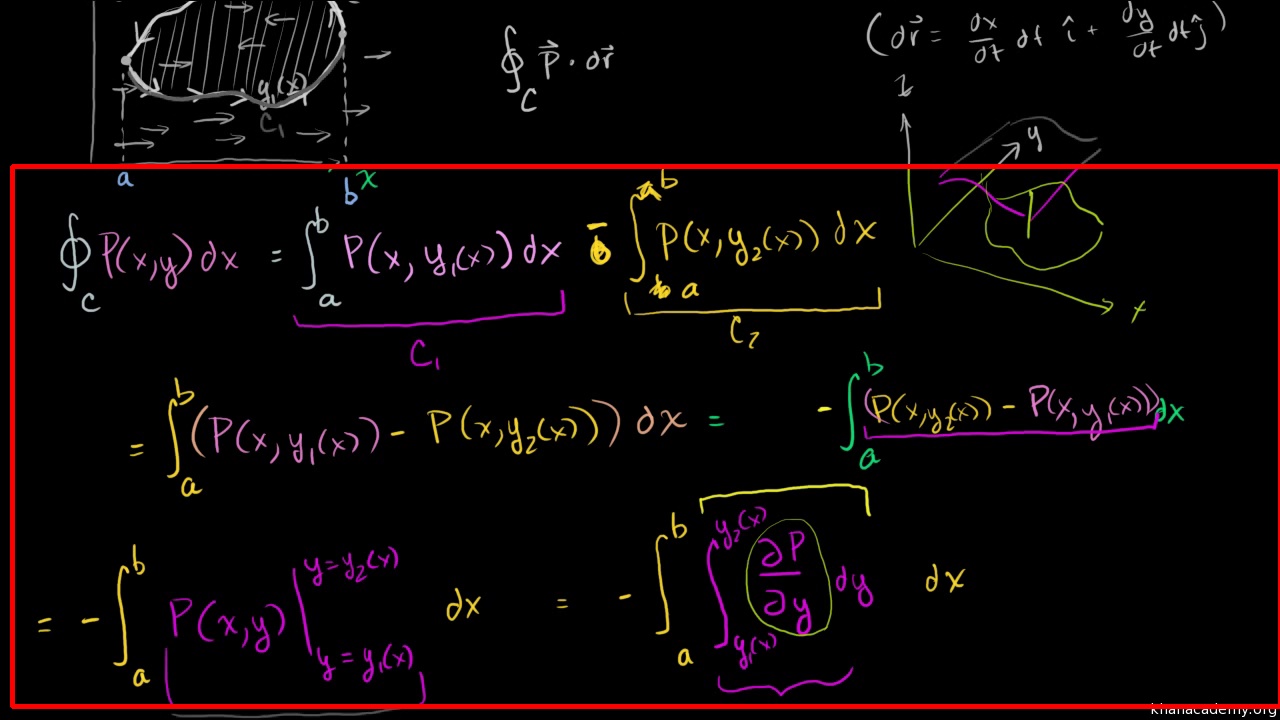 y₁(x)
C₁
∮_C P⃗ · dr⃗
(dr⃗ = dx/dt dt î + dy/dt dt ĵ)
z
y
x
a
b
x
∮_C P(x,y) dx = ∫_a^b P(x, y₁(x)) dx − ∫_a^b P(x, y₂(x)) dx
C₁
C₂
= ∫_a^b (P(x, y₁(x)) − P(x, y₂(x))) dx = − ∫_a^b (P(x, y₂(x)) − P(x, y₁(x))) dx
= − ∫_a^b P(x,y) |_{y = y₁(x)}^{y = y₂(x)} dx = − ∫_a^b ∫_{y₁(x)}^{y₂(x)} ∂P/∂y dy dx
khanacademy.org